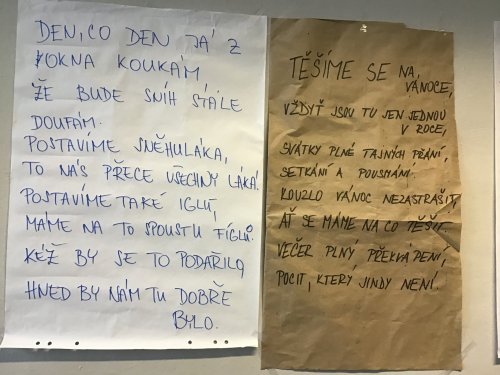 DEN, CO DEN JÁ Z
OKNA KOUKÁM
ŽE BUDE SNÍH STÁLE
DOUFÁM.
POSTAVÍME SNĚHULÁKA,
TO NÁS PŘECE VŠECHNY LÁKÁ!
POSTAVÍME TAKÉ IGLŮ,
MÁME NA TO SPOUSTU FÍGLŮ.
KÉŽ BY SE TO PODAŘILO,
HNED BY NÁM TU DOBŘE
BYLO.
TĚŠÍME SE NA
VÁNOCE,
VŽDYŤ JSOU TU JEN JEDNOU
V ROCE,
SVÁTKY PLNÉ TAJNÝCH PŘÁNÍ,
SETKÁNÍ A POUSMÁNÍ.
KOUZLO VÁNOC NEZASTRAŠIT,
AŤ SE MÁME NA CO TĚŠIT.
VEČER PLNÝ PŘEKVAPENÍ,
POCIT, KTERÝ JINDY NENÍ.